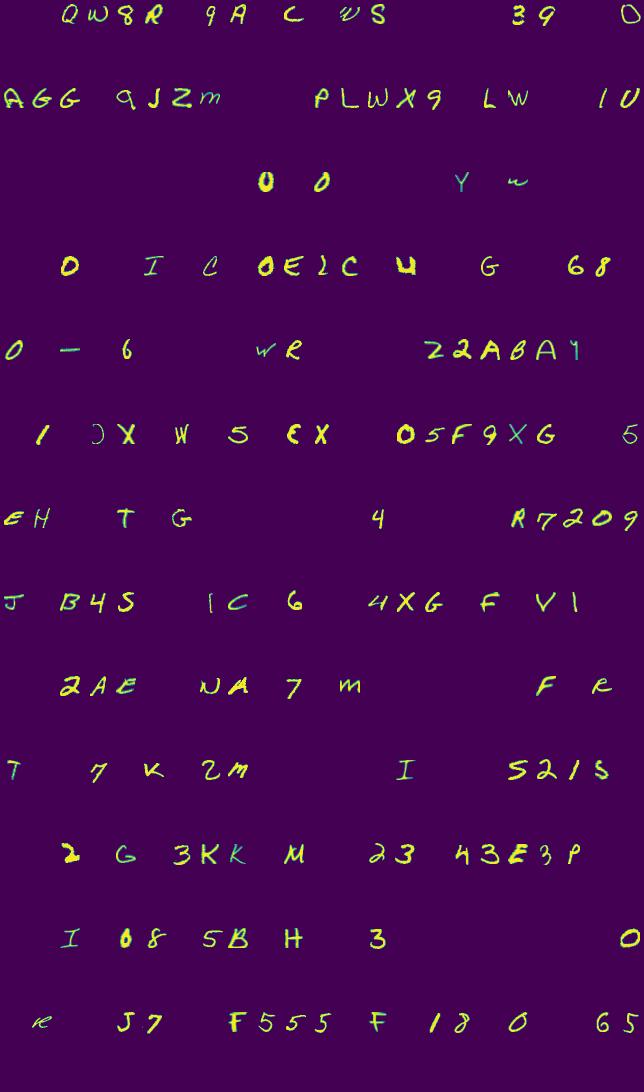 QW8R 9A C WS 39 0
AGG 9JZm PLWX9 LW 1U
0 0 Y w
0 I C 0E2C U G 68
0 - 6 WR Z2ABAY
1 JX W 5 EX 05F9XG 5
EH T G 4 R7209
J B4S 1C 6 4XG F V1
2AE NA 7 m F e
T 7 K 2m I 521S
2 G 3KK M 23 43E3P
I 08 5BH 3 0
e J7 F555 F 18 0 65